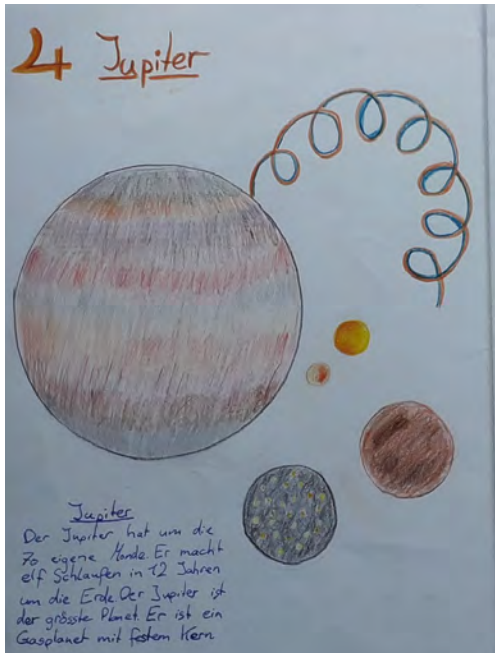 ♃ Jupiter
Jupiter
Der Jupiter hat um die
70 eigene Monde. Er macht
elf Schlaufen in 12 Jahren
um die Erde. Der Jupiter ist
der grösste Planet. Er ist ein
Gasplanet mit festem Kern